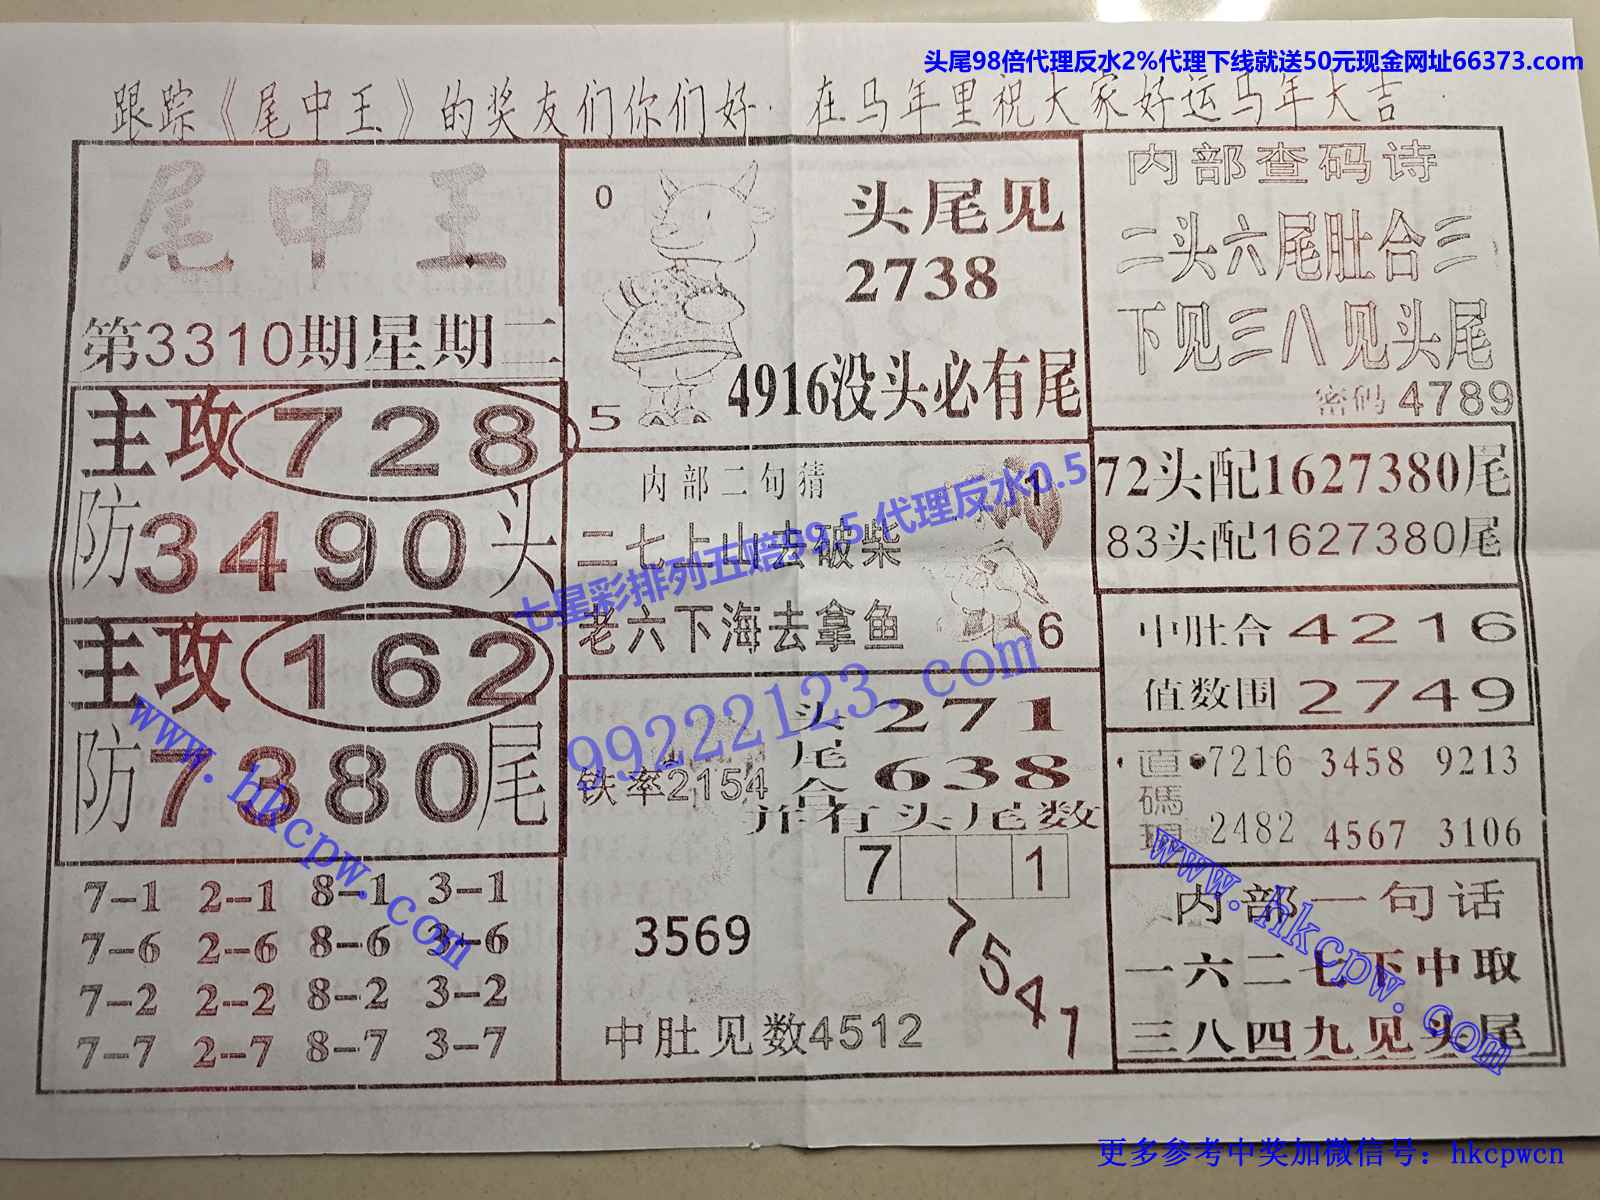 头尾98倍代理反水2%代理下线就送50元现金网址66373.com
跟踪《尾中王》的奖友们你们好. 在马年里祝大家好运马年大吉.
尾中王
第3310期星期二
主攻728
防3490头
主攻162
防7380尾
7--1 2--1 8--1 3--1
7--6 2--6 8--6 3--6
7--2 2--2 8--2 3--2
7--7 2--7 8--7 3--7
0
5
头尾见
2738
4916没头必有尾
内部二句猜
二七上山去破柴
老六下海去拿鱼
1
6
七星彩排列五赔99.5代理反水0.5
99222123.com
铁率2154
头尾合
271
638
并有头尾数
7 1
3569
7541
中肚见数4512
内部查码诗
二头六尾肚合三
下见三八见头尾
密码4789
72头配1627380尾
83头配1627380尾
中肚合4216
值数围2749
直碼
7216 3458 9213
2482 4567 3106
内部一句话
一六二七下中取
三八四九见头尾
www.hkcpw.com
www.hkcpw.com
更多参考中奖加微信号：hkcpwcn